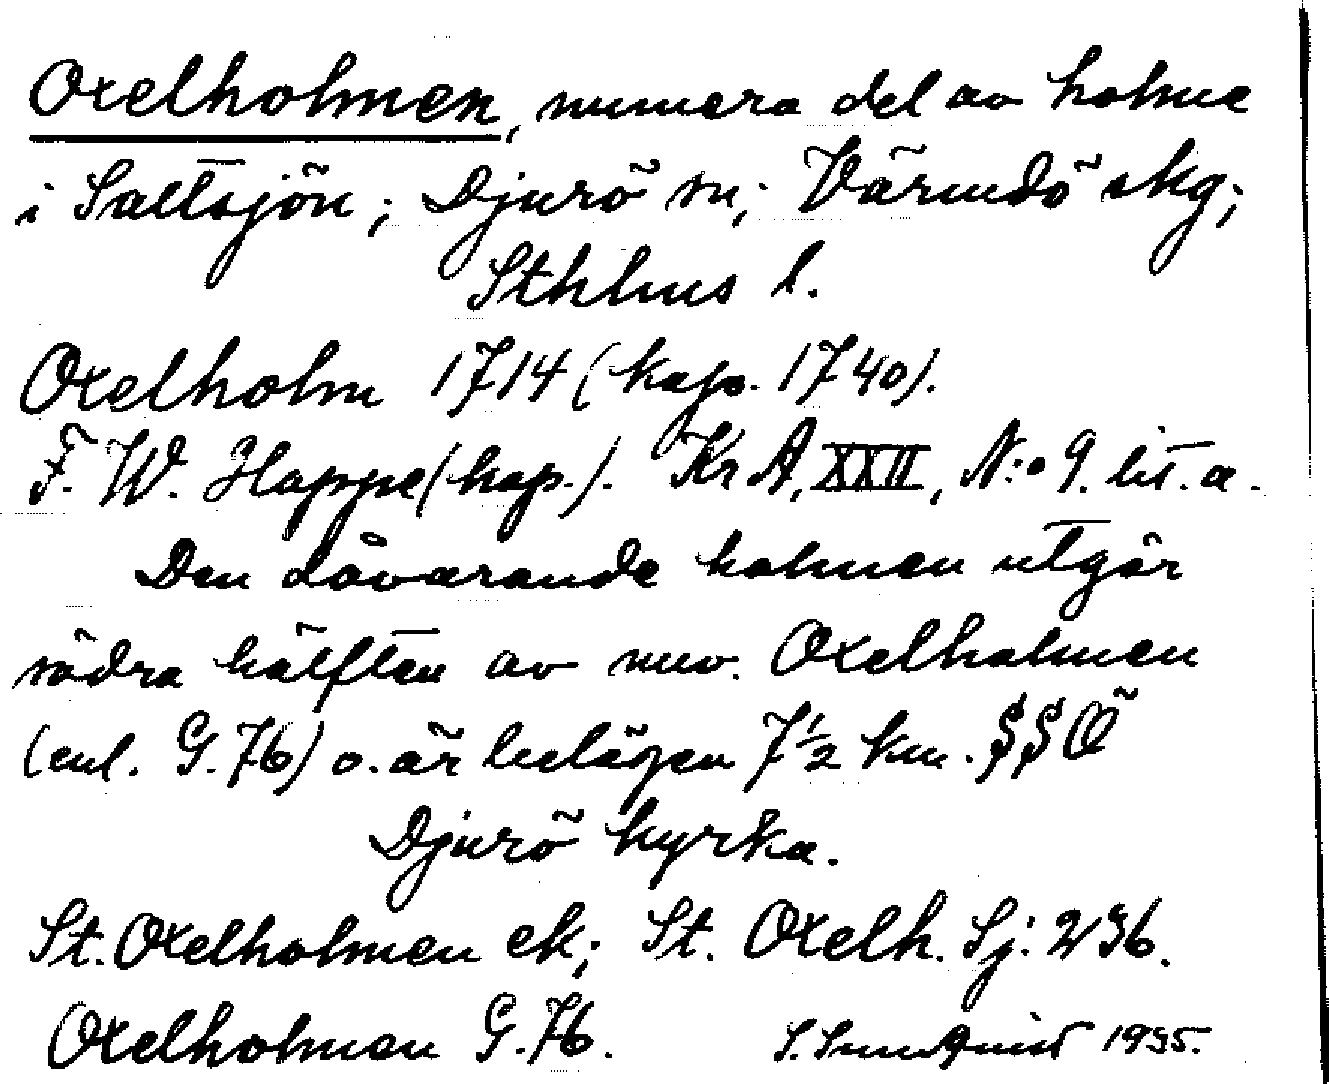 Oxelholmen, numera del av holme
i Saltsjön; Djurö sn; Värmdö skg;
Sthlms l.
Oxelholm 1714 (kop. 1740).
F. W. Happe (kop.). Kr A, XXII, N:o 9. lit. a.
Den dåvarande holmen utgör
södra hälften av nuv. Oxelholmen
(enl. G. 76) o. är belägen 7 1/2 km. SSÖ
Djurö kyrka.
St. Oxelholmen ek; St. Oxelh. Sj: 236.
Oxelholmen G. 76. 1935.